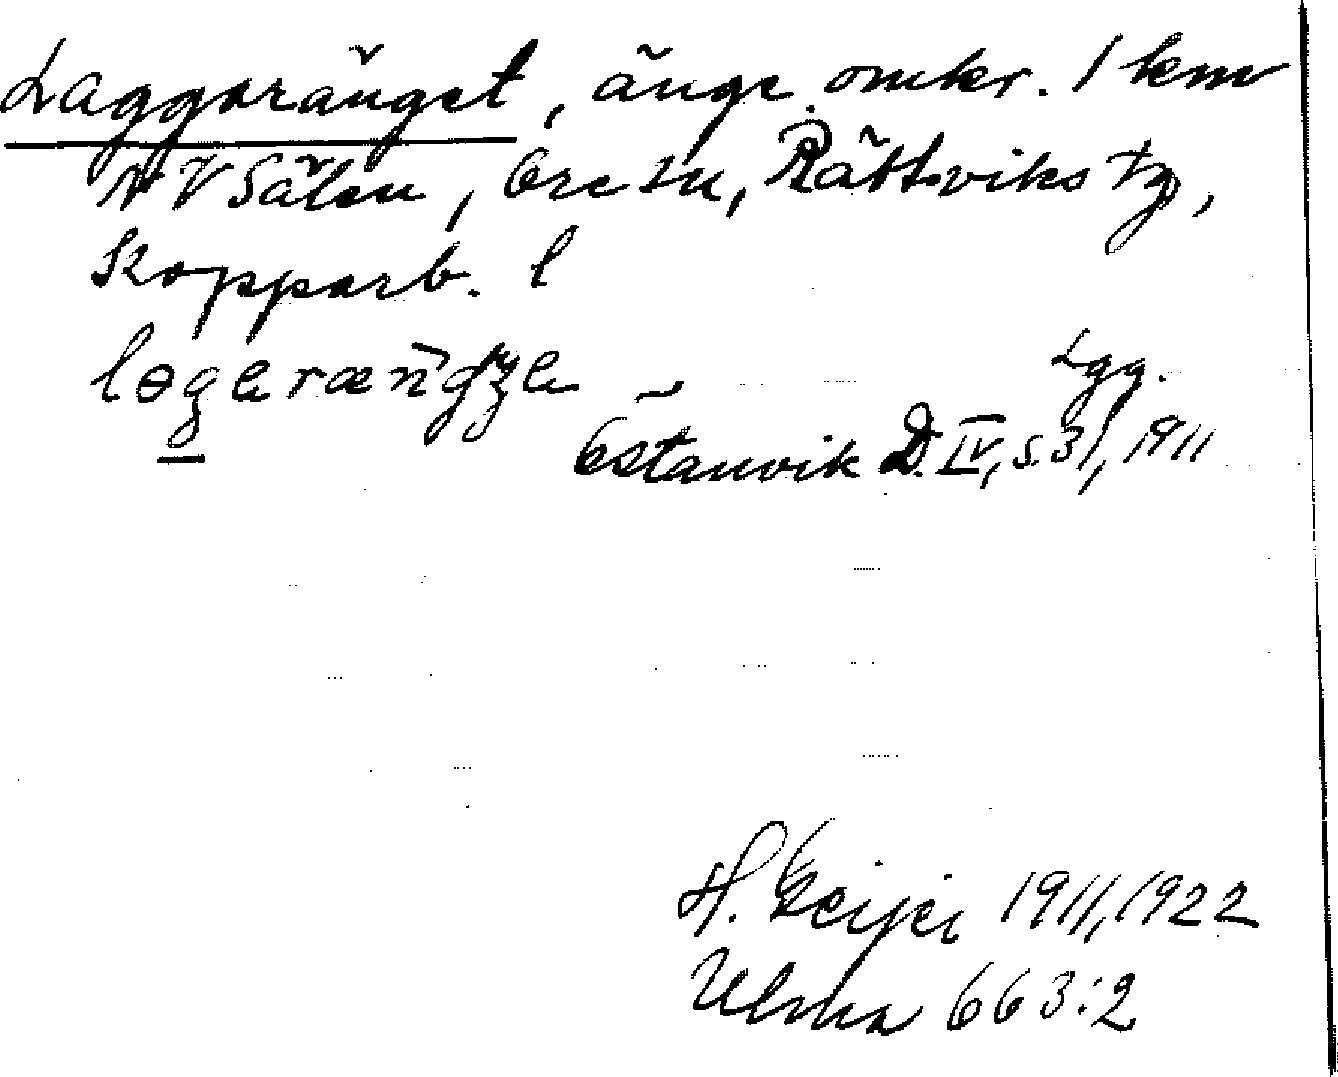 Laggoränget, änge omkr. 1 km
NV Sälen, Ore sn, Rättviks tg,
Kopparb. l
Lgg.
Östanvik D. IV, s. 31, 1911
H. Geijer 1911, 1922
Ulma 663:2